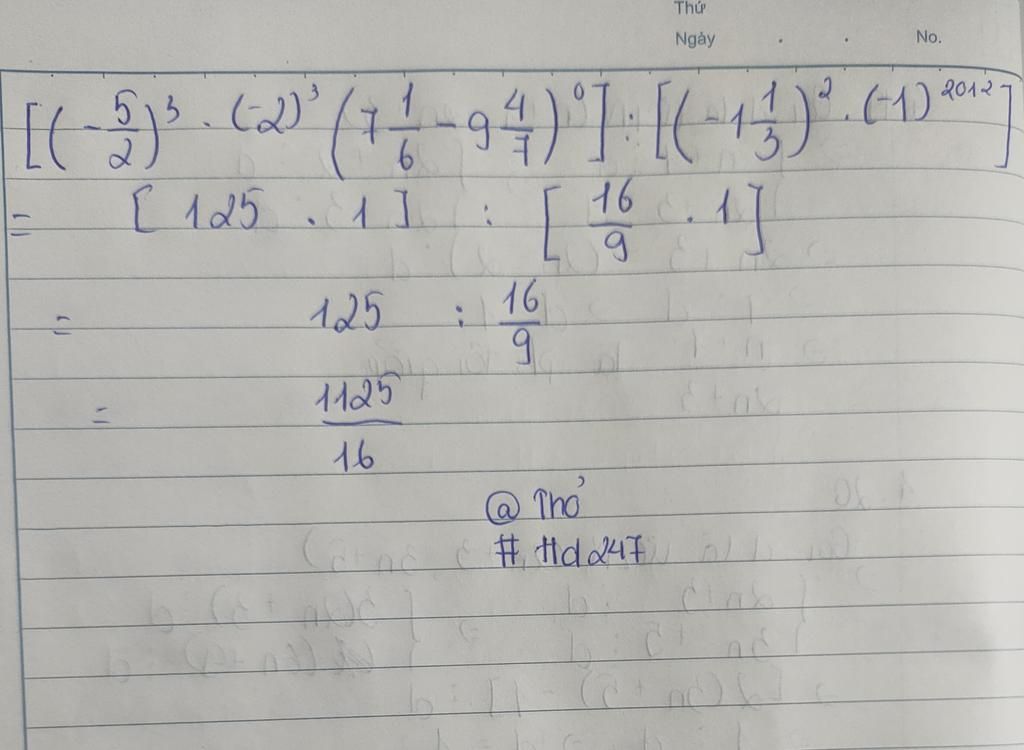 Thứ
Ngày . . No.
[(-5/2)³ . (-2)³ (7 1/6 - 9 4/7)⁰] : [(-1 1/3)² . (-1)²⁰¹²]
= [125 . 1] : [16/9 . 1]
= 125 : 16/9
= 1125/16
@ Thỏ
# Hd247